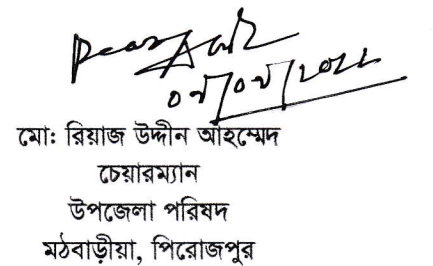 মো: রিয়াজ উদ্দীন আহম্মেদ
চেয়ারম্যান
উপজেলা পরিষদ
মঠবাড়ীয়া, পিরোজপুর